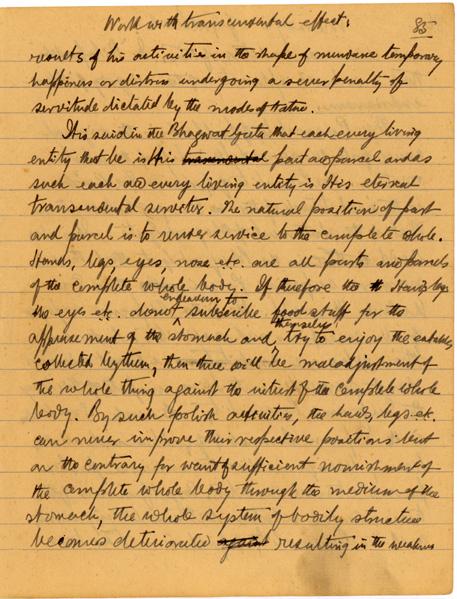 Work with transcendental effect.
85
results of his activities in the shape of mundane temporary
happiness or distress undergoing a severe penalty of
servitude dictated by the modes of Nature.
It is said in the Bhagwat Geeta that each every living
entity that be is His transcendental part and parcel and as
such each and every living entity is His eternal
transcendental servitor. The natural position of part
and parcel is to render service to the complete whole.
Hands, legs eyes, nose etc. are all parts and parcels
of the complete whole body. If therefore the Hands legs
the eyes etc. do not endeavour to subscribe food stuff for the
appeasement of the stomach and themselves try to enjoy the eatables
collected by them, then there will be maladjustment of
the whole thing against the interest of the complete whole
body. By such foolish activities, the hands, legs etc.
can never improve their respective positions but
on the contrary for want of sufficient nourishment of
the complete whole body through the medium of the
stomach, the whole system of bodily structure
becomes deteriorated again resulting in the weakness